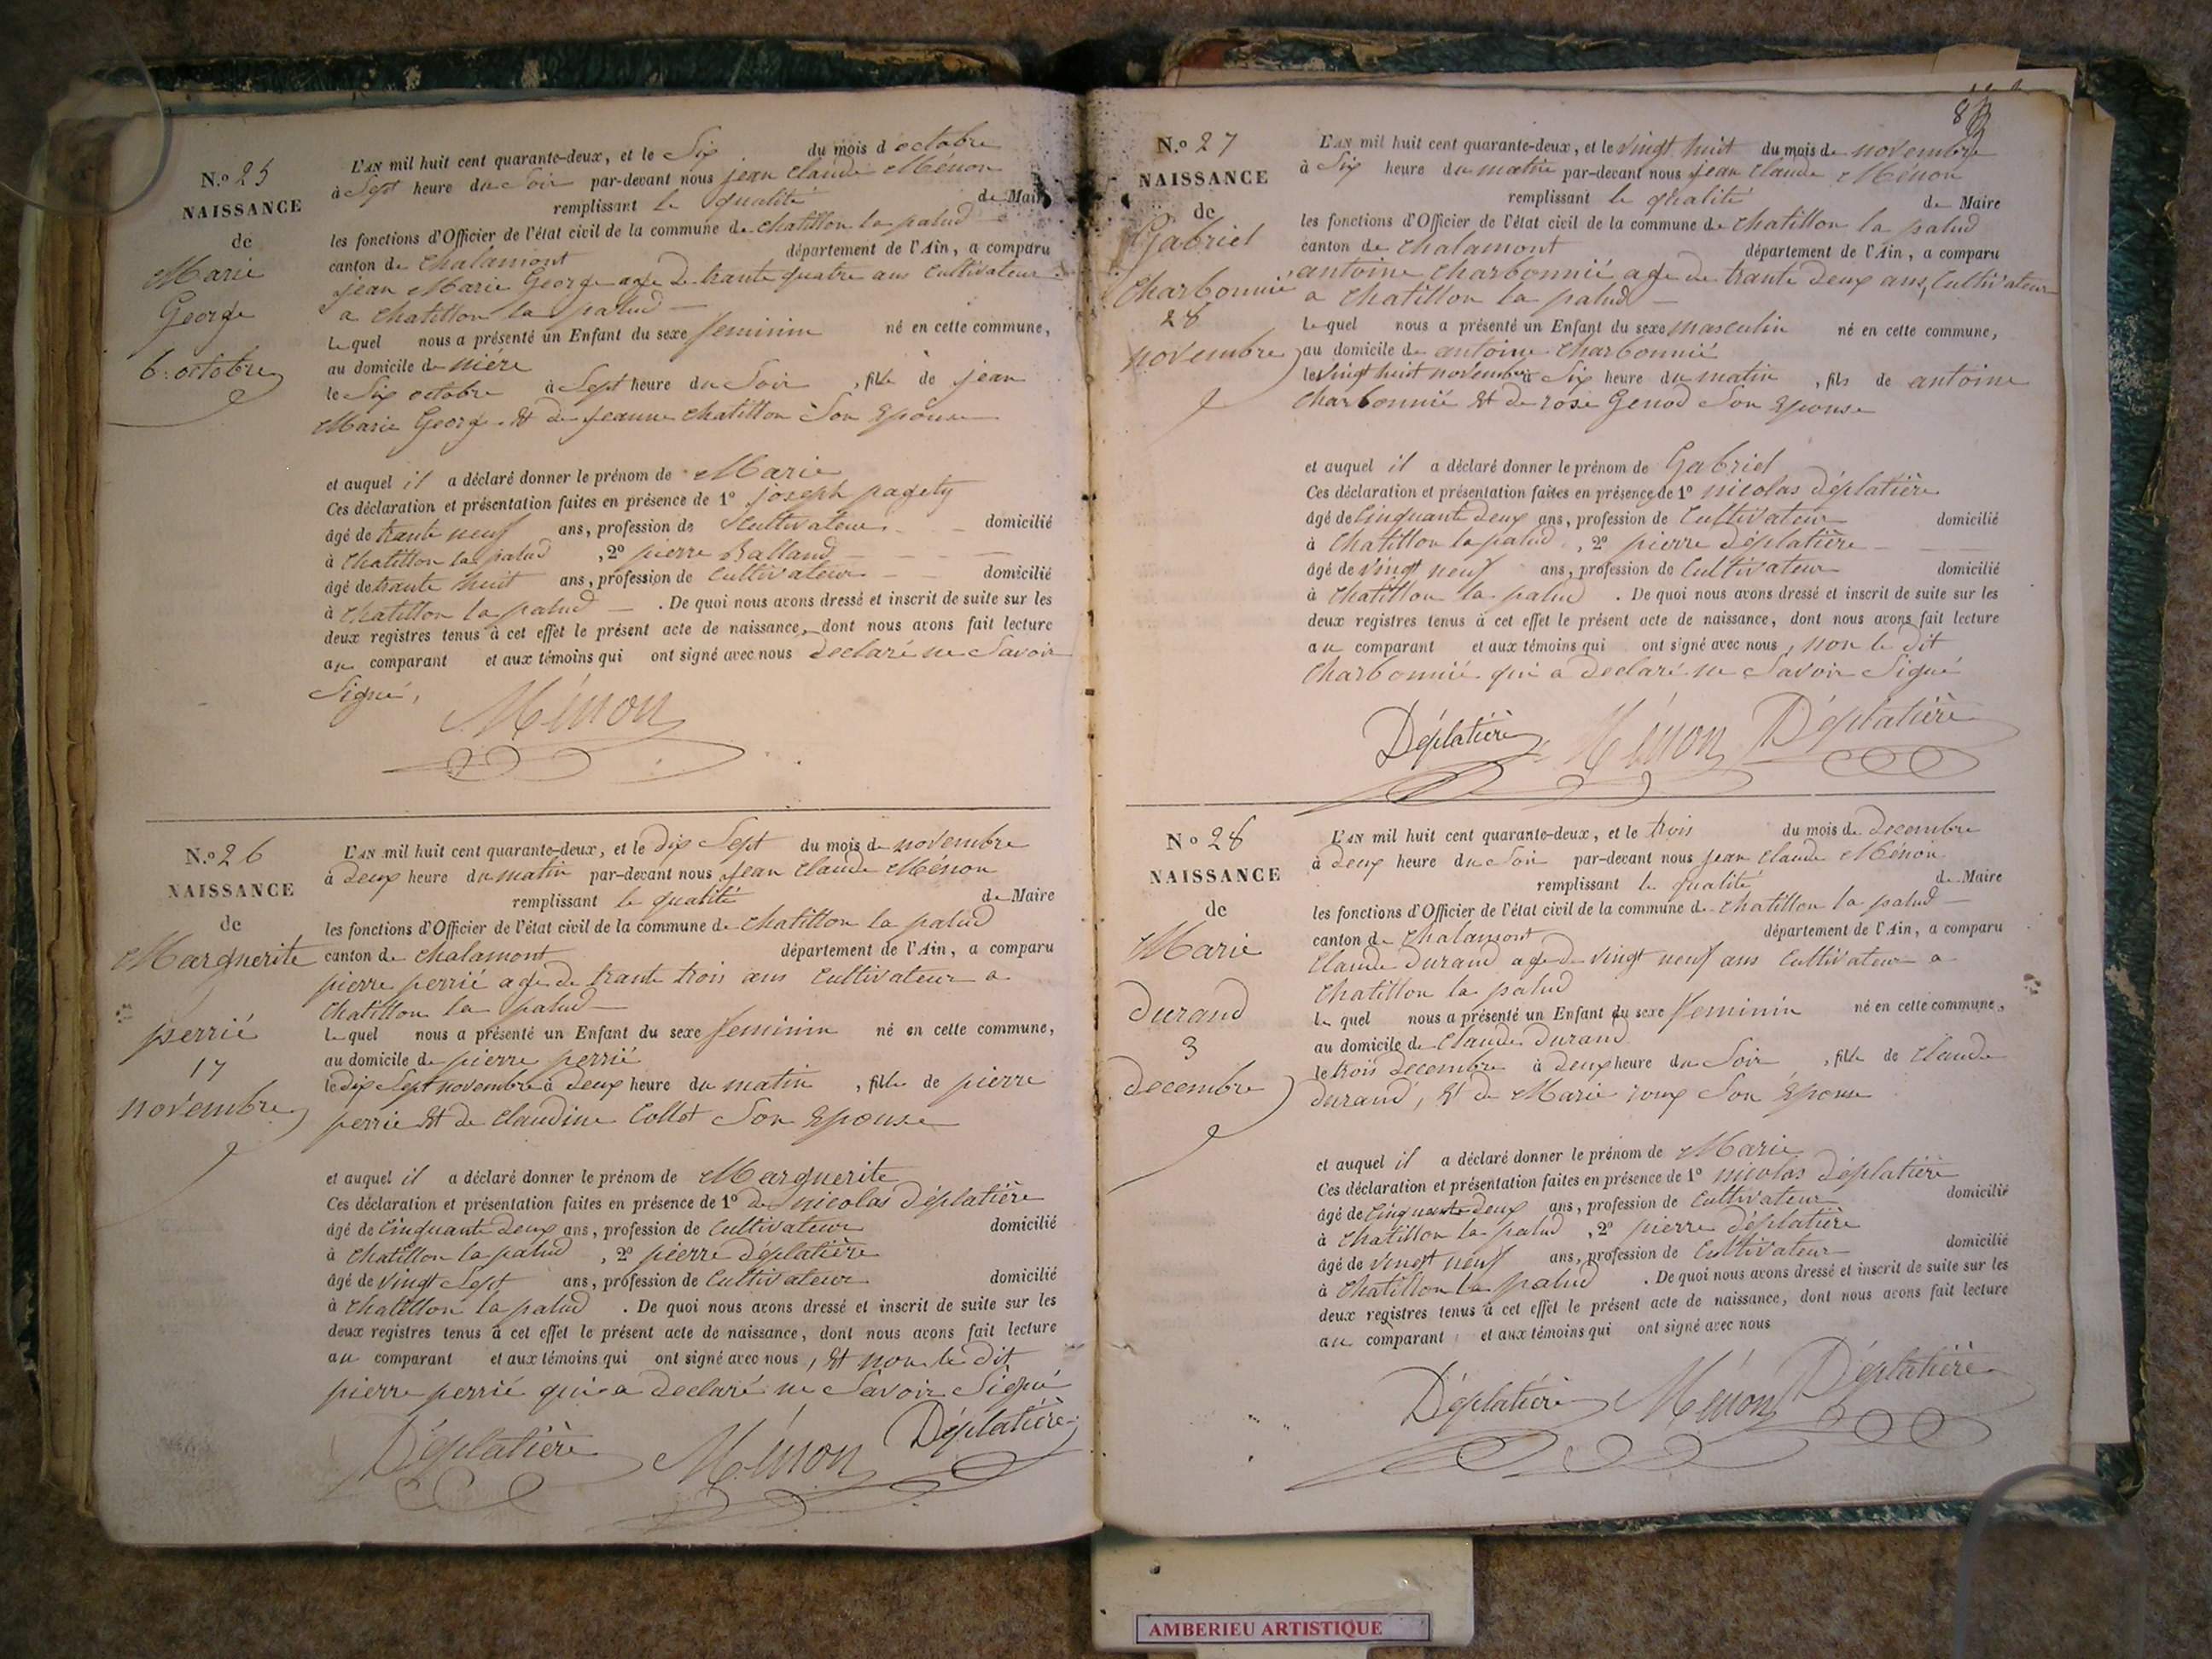 N.o 25
NAISSANCE
de
Marie
George
6. octobre
L'AN mil huit cent quarante-deux, et le Six du mois d octobre
à Sept heure du Soir par-devant nous jean Claude Ménon
remplissant la qualité de Maire
les fonctions d'Officier de l'état civil de la commune de chatillon la palud
canton de chalamont département de l'Ain, a comparu
jean Marie George age de trante quatre ans Cultivateur
a chatillon la palud
le quel nous a présenté un Enfant du sexe feminin né en cette commune,
au domicile de
le Six octobre à Sept heure du Soir , fille de jean
Marie George Et de jeanne chatillon Son Epouse
et auquel il a déclaré donner le prénom de Marie
Ces déclaration et présentation faites en présence de 1o joseph pagety
âgé de trante neuf ans, profession de Cultivateur domicilié
à chatillon la palud , 2o pierre Balland
âgé de trante huit ans, profession de Cultivateur domicilié
à chatillon la palud . De quoi nous avons dressé et inscrit de suite sur les
deux registres tenus à cet effet le présent acte de naissance, dont nous avons fait lecture
au comparant et aux témoins qui ont signé avec nous declaré ne Savoir
Signé,
Ménon
N.o 26
NAISSANCE
de
Marguerite
perrié
17
novembre
L'AN mil huit cent quarante-deux, et le dix Sept du mois de novembre
à deux heure du matin par-devant nous jean Claude Ménon
remplissant la qualité de Maire
les fonctions d'Officier de l'état civil de la commune de chatillon la palud
canton de chalamont département de l'Ain, a comparu
pierre perrié age de trante trois ans Cultivateur a
chatillon la palud
le quel nous a présenté un Enfant du sexe feminin né en cette commune,
au domicile de pierre perrié
le dix Sept novembre à deux heure du matin , fille de pierre
perrie Et de Claudine Collet Son Epouse
et auquel il a déclaré donner le prénom de Marguerite
Ces déclaration et présentation faites en présence de 1o de nicolas déplatière
âgé de Cinquante deux ans, profession de Cultivateur domicilié
à chatillon la palud , 2o pierre déplatière
âgé de vingt Sept ans, profession de Cultivateur domicilié
à chatillon la palud . De quoi nous avons dressé et inscrit de suite sur les
deux registres tenus à cet effet le présent acte de naissance, dont nous avons fait lecture
au comparant et aux témoins qui ont signé avec nous, Et non le dit
pierre perrié qui a declaré ne Savoir Signé
Déplatière Ménon Déplatière
N.o 27
NAISSANCE
de
Gabriel
Charbonnié
28
novembre
L'AN mil huit cent quarante-deux, et le vingt huit du mois de novembre
à Six heure du matin par-devant nous jean Claude Ménon
remplissant la qualité de Maire
les fonctions d'Officier de l'état civil de la commune de chatillon la palud
canton de chalamont département de l'Ain, a comparu
antoine Charbonnié age de trante deux ans, Cultivateur
a chatillon la palud
le quel nous a présenté un Enfant du sexe masculin né en cette commune,
au domicile de antoine Charbonnié
le vingt huit novembre à Six heure du matin , fils de antoine
Charbonnié Et de rose Genod Son Epouse
et auquel il a déclaré donner le prénom de Gabriel
Ces déclaration et présentation faites en présence de 1o nicolas déplatière
âgé de Cinquante deux ans, profession de Cultivateur domicilié
à chatillon la palud , 2o pierre déplatière
âgé de vingt neuf ans, profession de Cultivateur domicilié
à chatillon la palud . De quoi nous avons dressé et inscrit de suite sur les
deux registres tenus à cet effet le présent acte de naissance, dont nous avons fait lecture
au comparant et aux témoins qui ont signé avec nous, non le dit
Charbonnié qui a declaré ne Savoir Signé
Déplatière Ménon Déplatière
N.o 28
NAISSANCE
de
Marie
durand
3
decembre
L'AN mil huit cent quarante-deux, et le trois du mois de decembre
à deux heure du Soir par-devant nous jean Claude Ménon
remplissant la qualité de Maire
les fonctions d'Officier de l'état civil de la commune de chatillon la palud
canton de chalamont département de l'Ain, a comparu
Claude durand age de vingt neuf ans Cultivateur a
chatillon la palud
le quel nous a présenté un Enfant du sexe feminin né en cette commune,
au domicile de Claude durand
le trois decembre à deux heure du Soir , fille de Claude
durand, Et de Marie roux Son Epouse
et auquel il a déclaré donner le prénom de Marie
Ces déclaration et présentation faites en présence de 1o nicolas déplatière
âgé de Cinquante deux ans, profession de Cultivateur domicilié
à chatillon la palud , 2o pierre déplatière
âgé de vingt neuf ans, profession de Cultivateur domicilié
à chatillon la palud . De quoi nous avons dressé et inscrit de suite sur les
deux registres tenus à cet effet le présent acte de naissance, dont nous avons fait lecture
au comparant et aux témoins qui ont signé avec nous
Déplatière Ménon Déplatière
AMBERIEU ARTISTIQUE